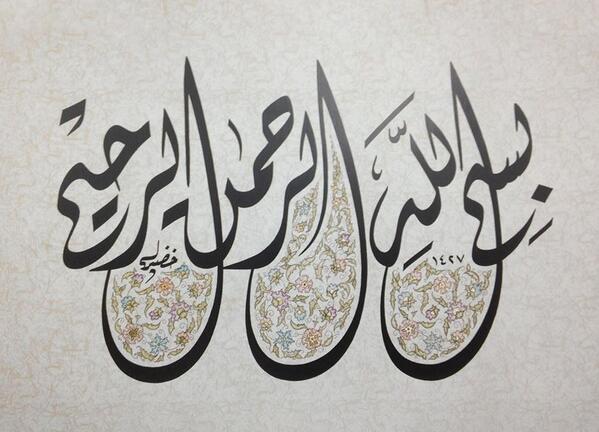 بسم اللَّهِ الرحمن الرحيم
١٤٢٧
خضير